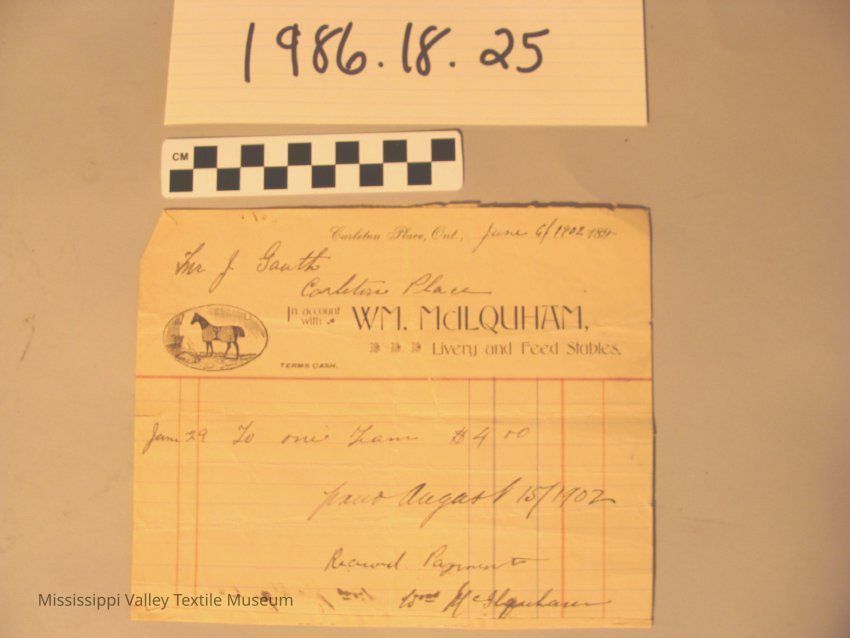 1986.18.25
CM
Carleton Place, Ont., June 6/1902 189
Mr J. Gauth
Carleton Place
In account with WM. McILQUHAM,
Livery and Feed Stables.
TERMS CASH.
29 To one Team $4 00
paid August 15/1902
Received Payment
Wm McIlquham
Mississippi Valley Textile Museum